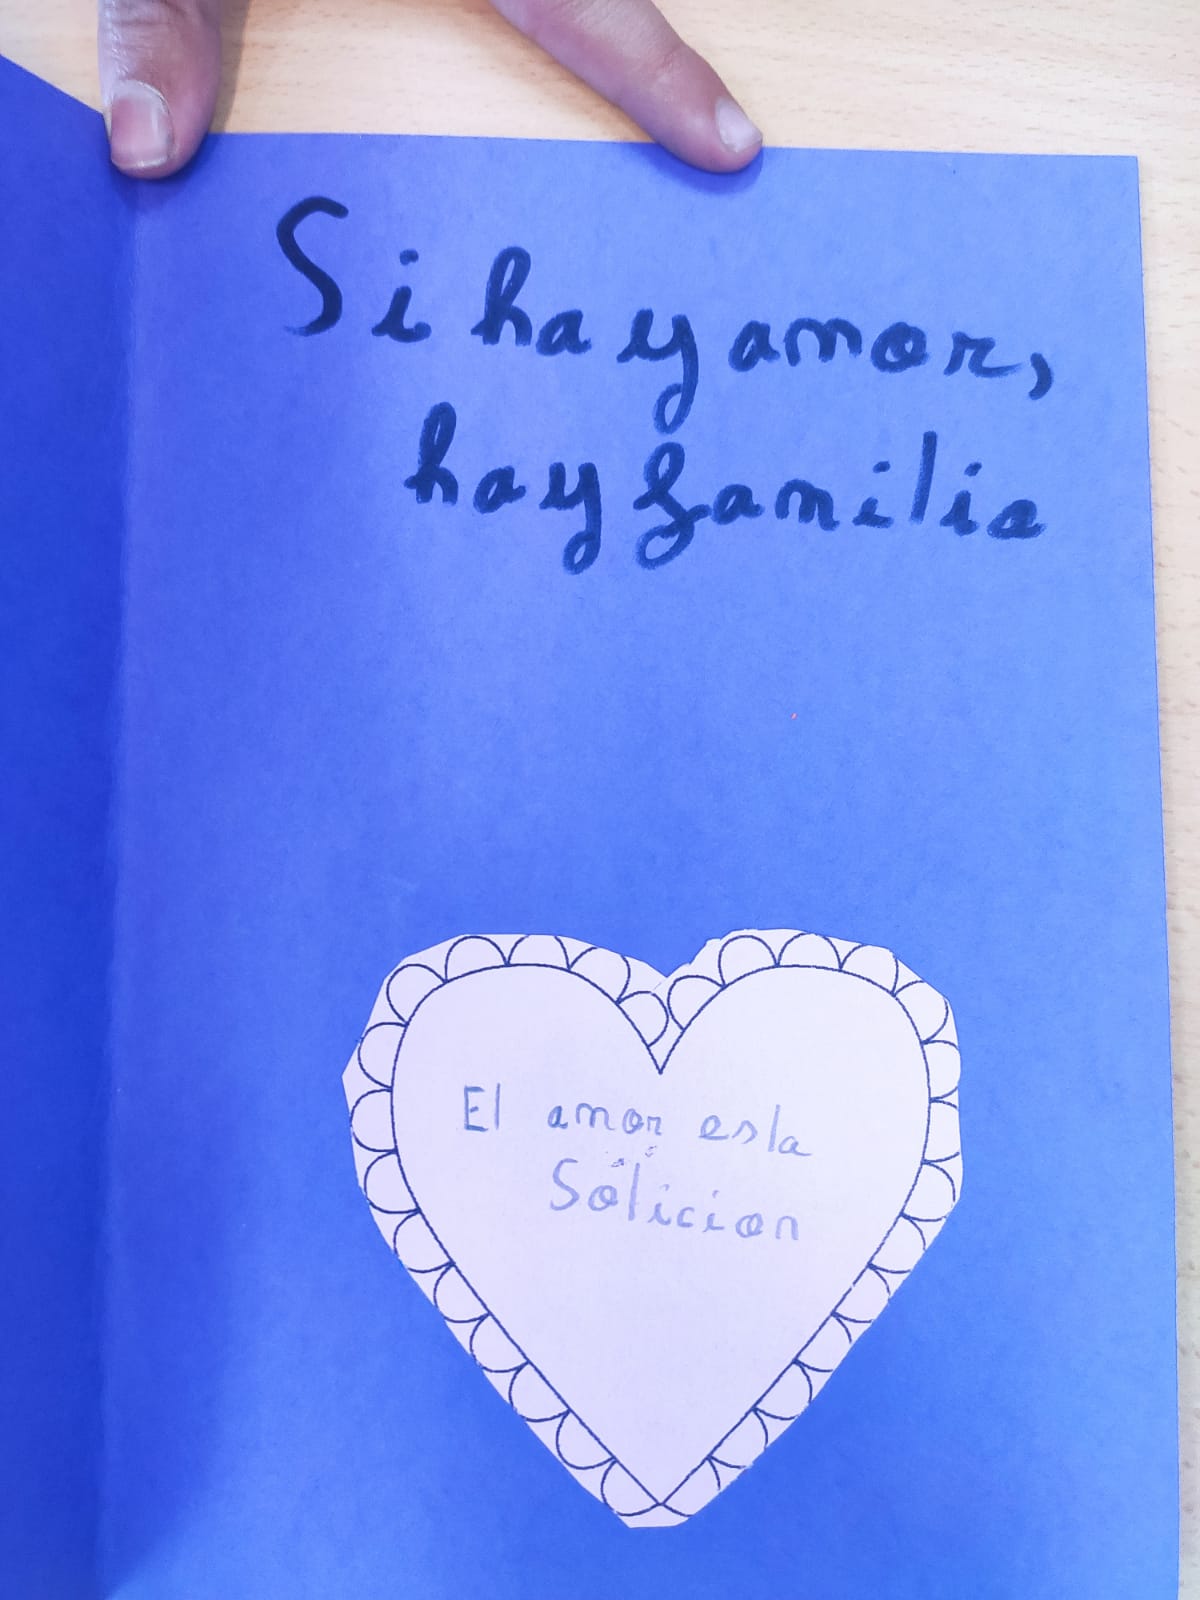 Si hay amor,
hay familia
El amor es la
Solicion